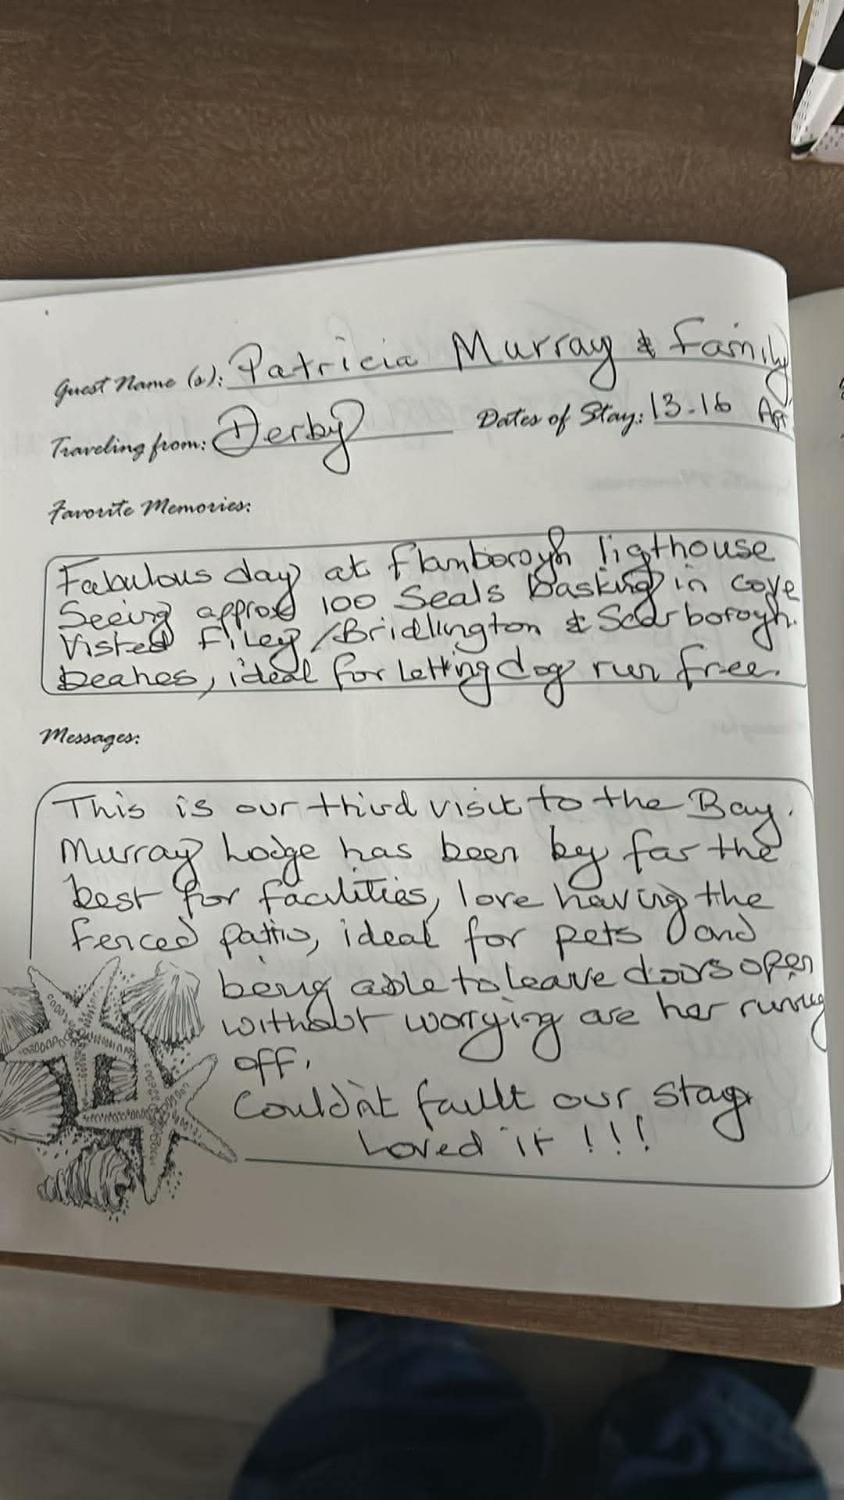 Guest Name (s): Patricia Murray & Family
Traveling from: Derby Dates of Stay: 13-16 Apr
Favorite Memories:
Fabulous day at Flamborogh ligthouse
Seeing approx 100 Seals basking in cove
Visted Filey/Bridlington & Scarborogh.
beahes, ideal for letting dog run free.
Messages:
This is our third visit to the Bay.
Murray Lodge has been by far the
best for facilities, love having the
fenced patio, ideal for pets and
being able to leave doors open
without worrying are her running
off.
Couldn't fault our stay
Loved it !!!